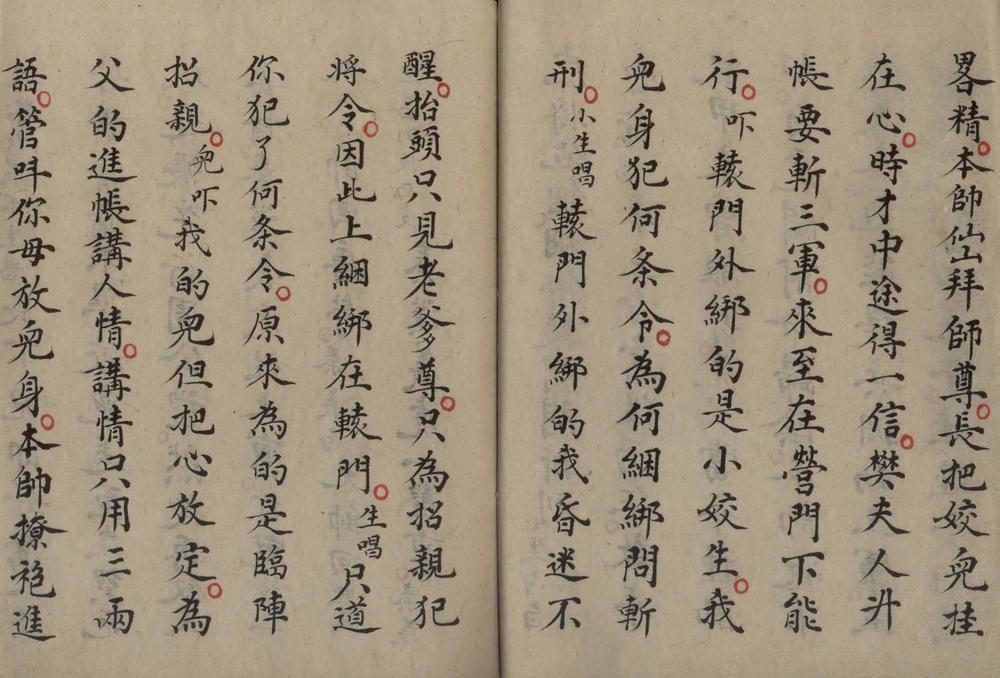 畧精。本帥仙山拜師尊。長把姣皃挂
在心。時才中途得一信。樊夫人升
帳要斬三軍。來至在營門下能
行。吓轅門外綁的是小姣生。我
皃身犯何条令。為何綑綁問斬
刑。小生唱轅門外綁的我昏迷不
醒。抬頭只見老爹尊。只為招親犯
将令。因此上綑綁在轅門。生唱只道
你犯了何条令。原來為的是臨陣
招親。皃吓我的皃但把心放定。為
父的進帳講人情。講情只用三兩
語。管呌你母放皃身。本帥撩袍進